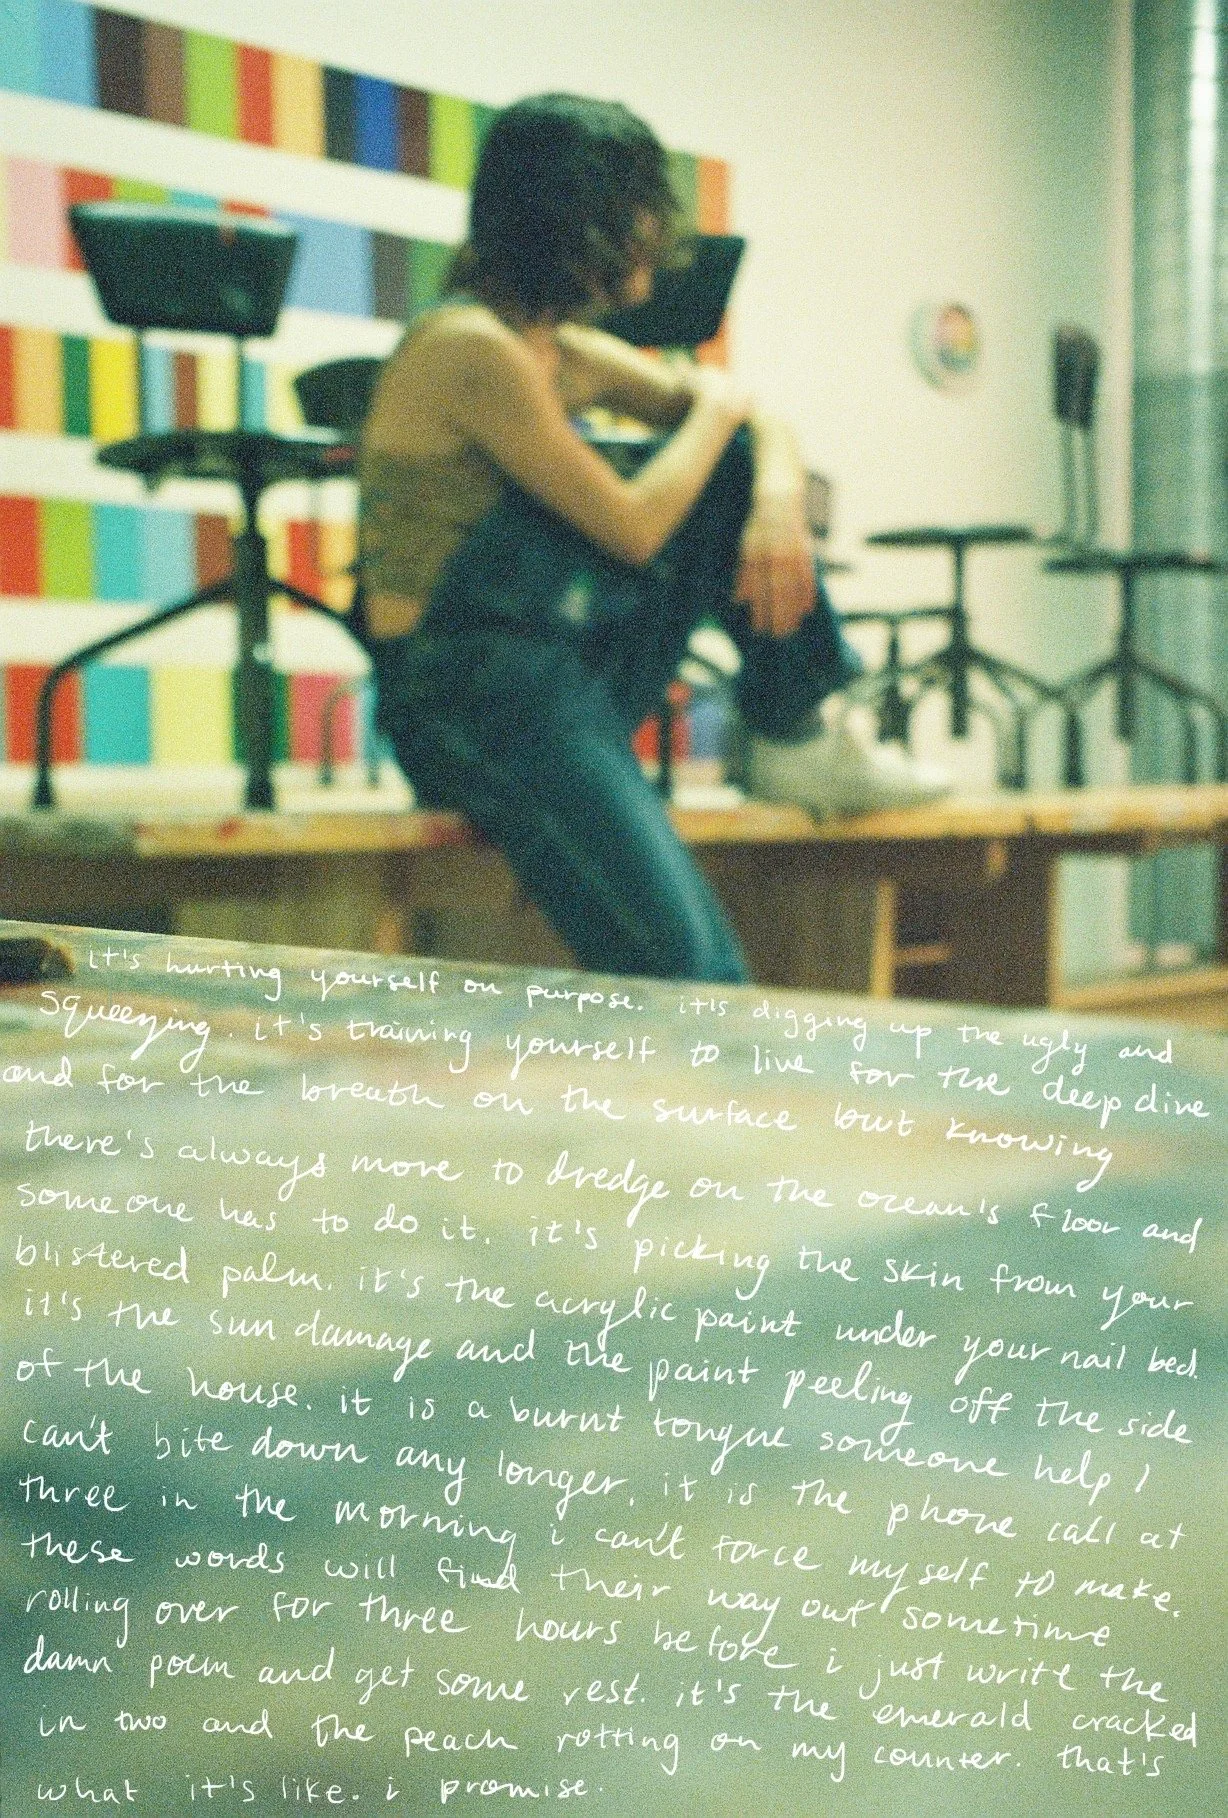 it's hurting yourself on purpose. it's digging up the ugly and
squeezing. it's training yourself to live for the deep dive
and for the breath on the surface but knowing
there's always more to dredge on the ocean's floor and
someone has to do it. it's picking the skin from your
blistered palm. it's the acrylic paint under your nail bed.
it's the sun damage and the paint peeling off the side
of the house. it is a burnt tongue someone help I
can't bite down any longer. it is the phone call at
three in the morning i can't force myself to make.
these words will find their way out sometime
rolling over for three hours before i just write the
damn poem and get some rest. it's the emerald cracked
in two and the peach rotting on my counter. that's
what it's like. i promise.